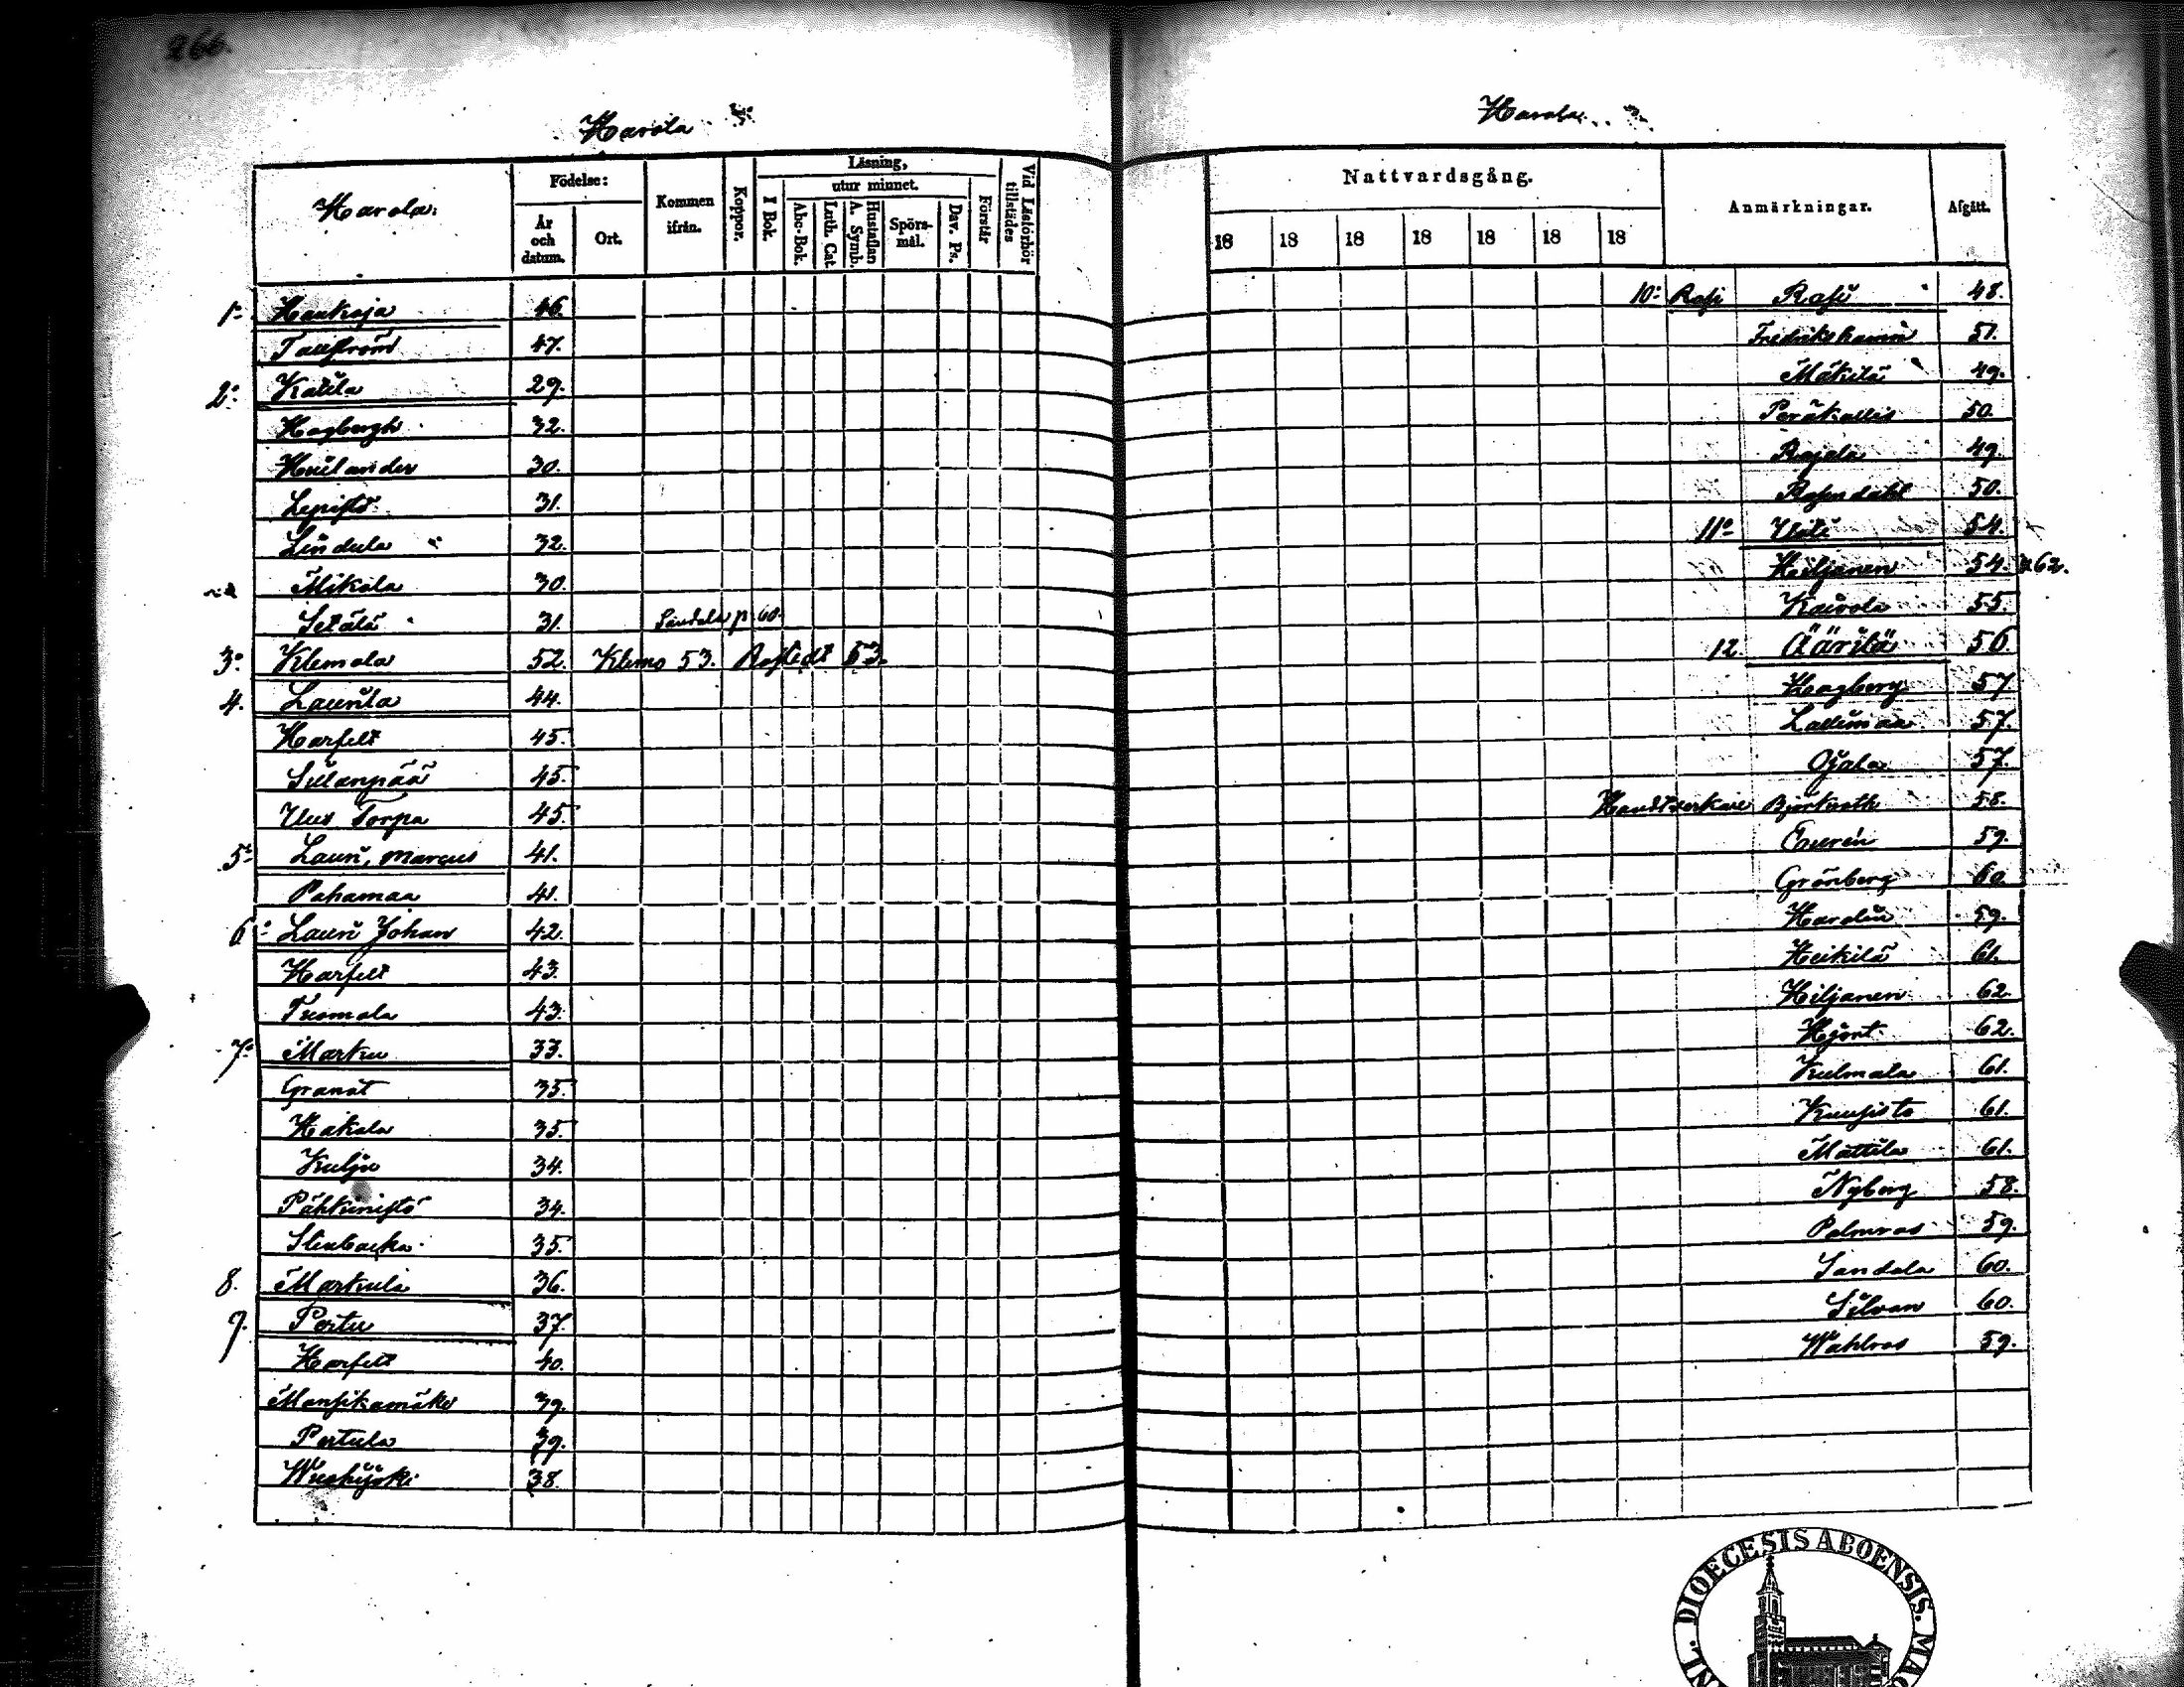 266.
Harola
Harola.
Födelse:
År och datum.
Ort.
Kommen ifrån.
Koppor.
Läsning,
I Bok.
utur minnet.
Abc-Bok.
Luth. Cat.
Hustaflan A. Symb.
Spörs-mål.
Dav. Ps.
Förstår
Vid Läsförhör tillstädes
1: Haukoja 46.
Tallström 47.
2: Kätilä 29.
Hagbergh 32.
Huilander 30.
Lepistö 31.
Lindula 32.
Mikola 30.
Setälä 31. Sandala p. 60.
3: Klemola 52. Klemo 53. 53.
4. Laurila 44.
Harfelt 45.
Sillanpää 45.
Uus Torpa 45.
5: Lauri, Marcus 41.
Pahamaa 41.
6: Lauri Johan 42.
Harfelt 43.
Tuomola 43.
7: Marku 33.
Granat 35.
Hakala 35.
Kulju 34.
Pähkinistö 34.
Stenbacka 35.
8. Markula 36.
9. Perttu 37.
Harfelt 40.
Mansikamäki 39.
Pertula 39.
38.
Harola
Nattvardsgång.
Anmärkningar.
Afgått.
18 18 18 18 18 18 18
10: Rasi Rasi 48.
Fredrikshamn 51.
Mäkilä 49.
Peräkallio 50.
Rajala 49.
Rosendahl 50.
11: 54.
Hiljanen 54. 62.
Kaivola 55.
12. Äärilä 56.
Hagberg 57
Lallimaa 57.
Ojala 57.
Handtverkare Björkroth 58.
59.
Grönberg 60
Hardin 59.
Heikilä 61.
Hiljanen 62
Hjort 62.
Kulmala 61.
Kuusisto 61.
Mattila 61.
Nyberg 58.
Palmros 59.
Sandala 60.
Silvan 60.
Wahlros 59.
DIOECESIS ABOENSIS.